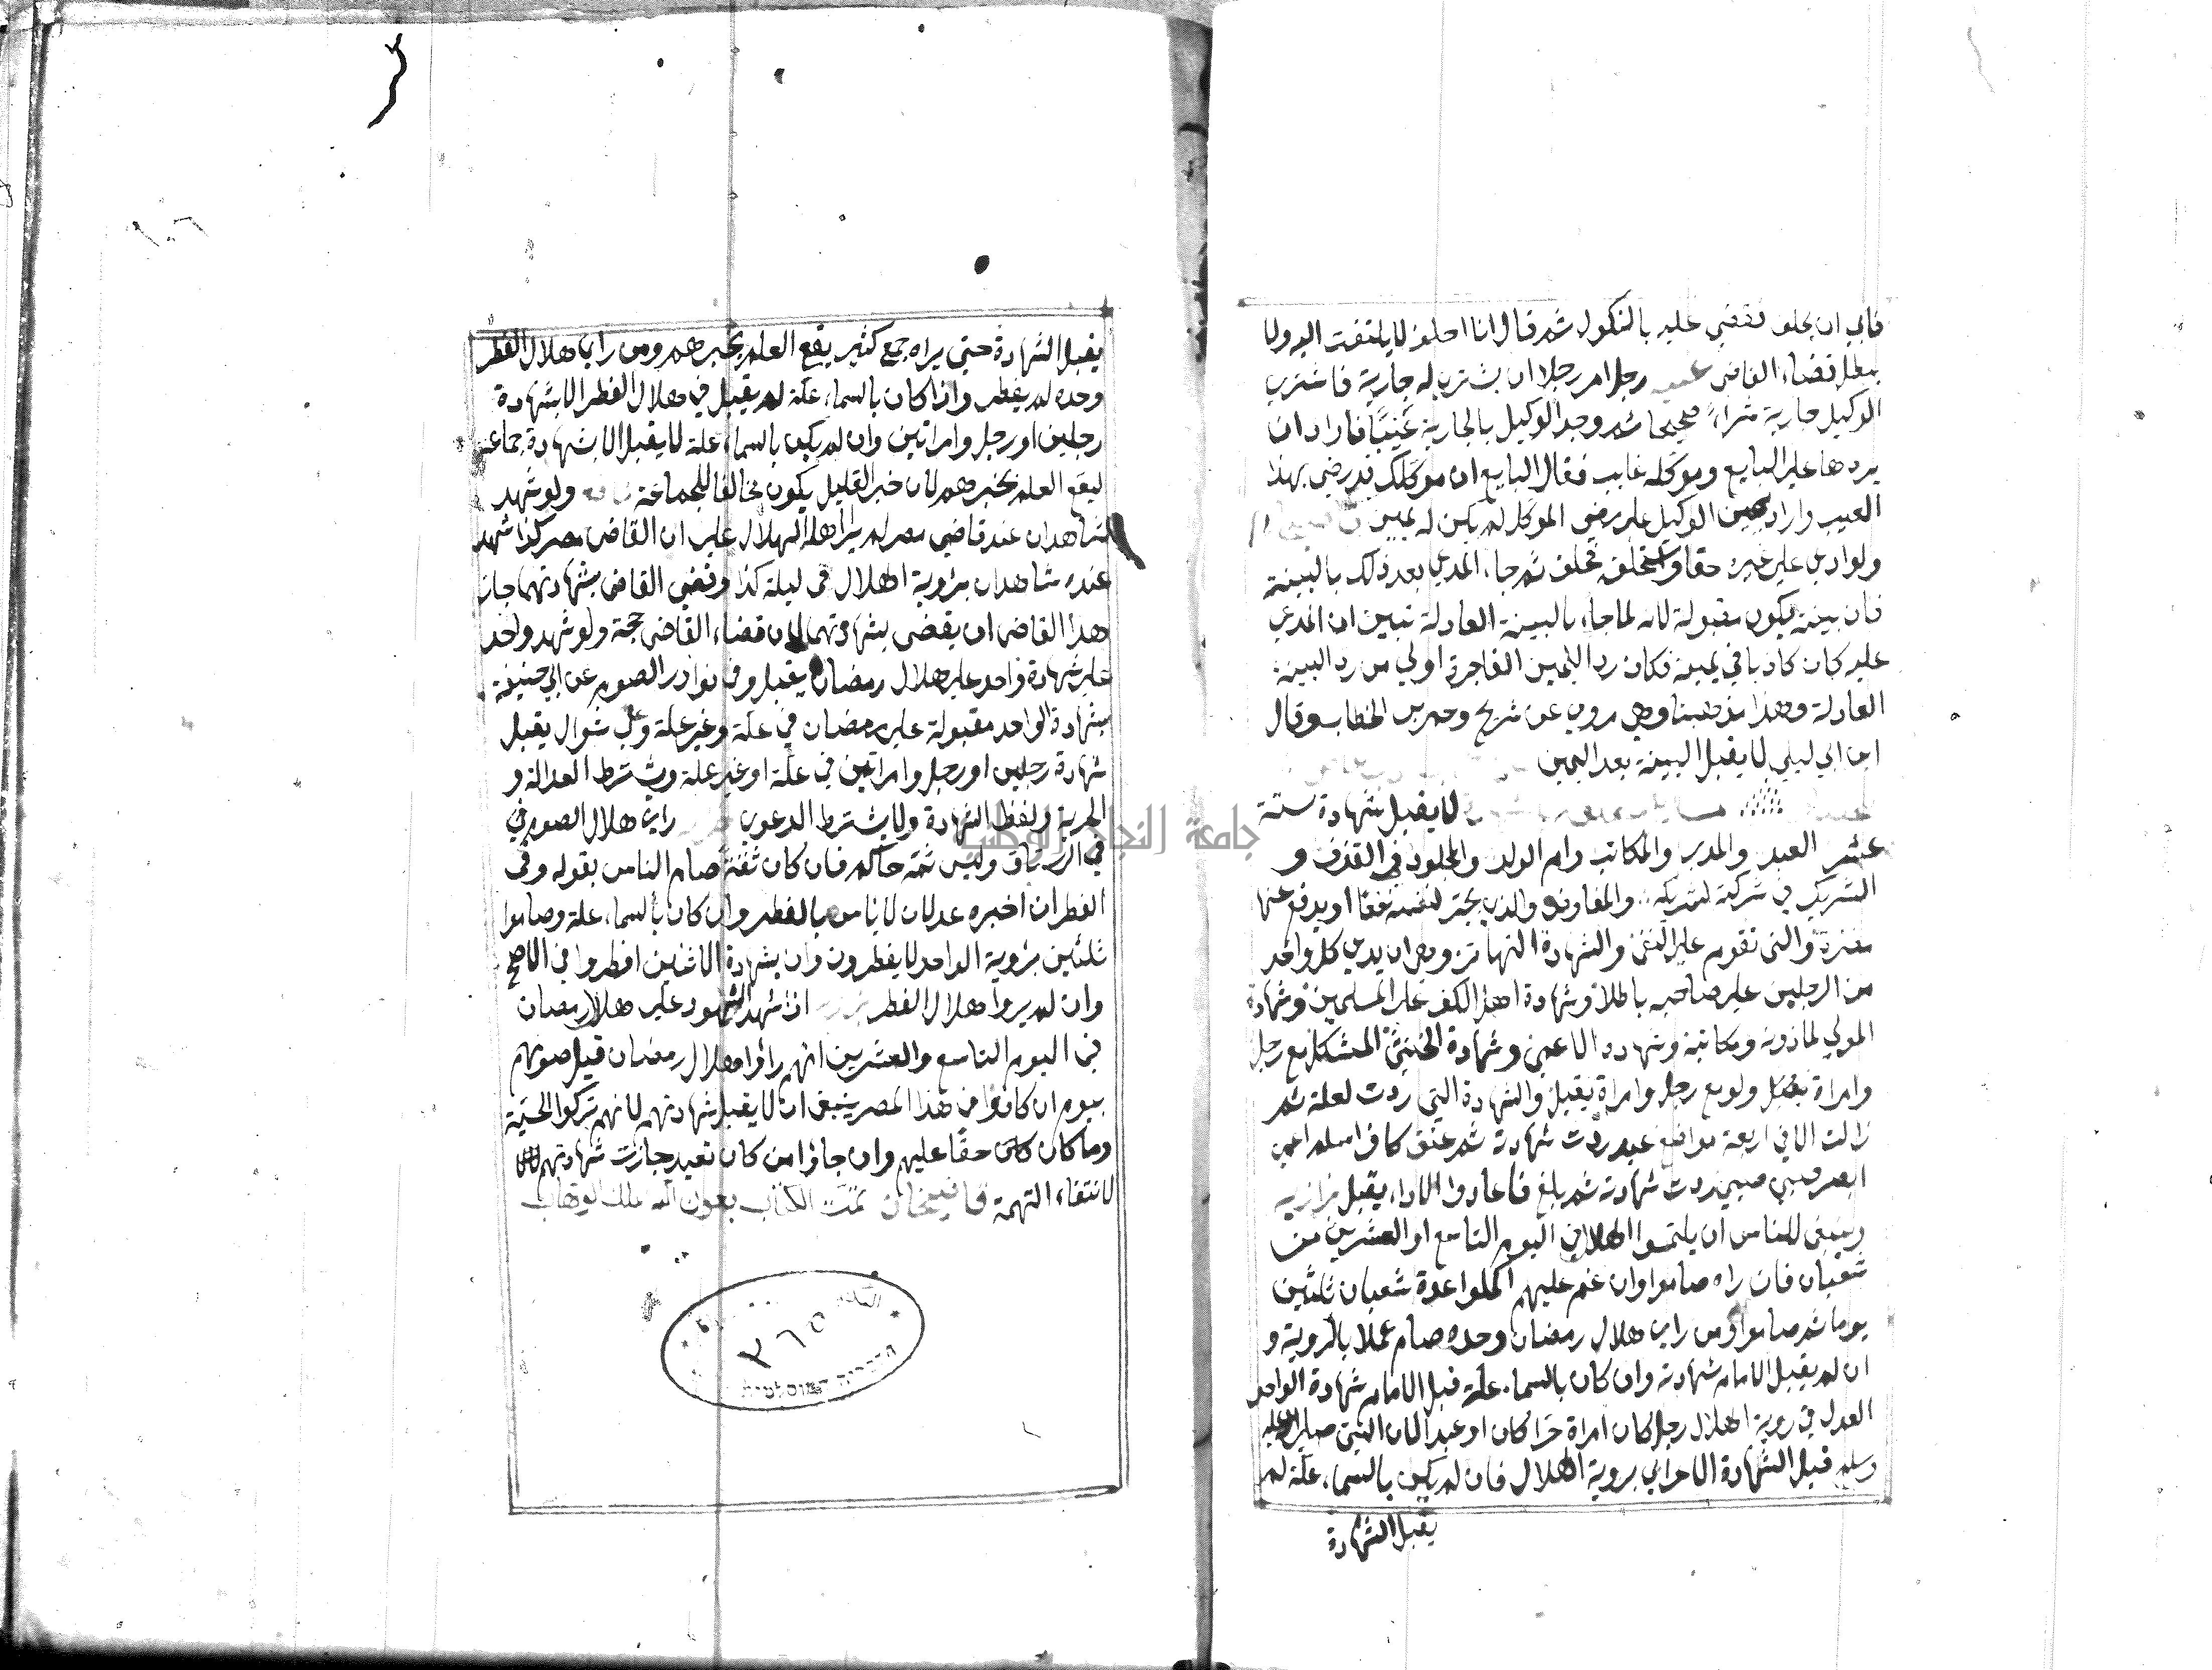 فابي ان يحلف فقضي عليه بالنكول ثم قال انا احلف لا يلتفت اليه ولا
يبطل قضاء القاضي رجل امر رجلا ان يشتري له جارية فاشتري
الوكيل جارية شراء صحيحا ثم وجد الوكيل بالجارية عيبا فاراد ان
يردها علي البايع وموكله غايب فقال البايع ان موكلك قد رضي بهذا
العيب واراد يمين الوكيل علي رضي الموكل لم يكن له يمين
ولو ادعي علي غيره حقا واستحلفه فحلف ثم جاء المدعي بعد ذلك بالبينة
فان بينته يكون مقبولة لانه لما جاء بالبينة العادلة تبين ان المدعي
عليه كان كاذبا في يمينه فكان رد اليمين الفاجرة اولي من رد البينة
العادلة وهذا مذهبنا وهي مروي عن شريح وعمر بن الخطاب وقال
ابن ابي ليلي لا يقبل البينة بعد اليمين
لا يقبل شهادة ستة
عشر العبد والمدبر والمكاتب وام الولد والمحدود في القذف و
الشريك في شركة لشريكه والمفاوض والذي يجتر لنفسه نفعا او يدفع عنها
مضرة والتي تقوم علي النفي والشهادة التهاتر وهي ان يدعي كل واحد
من الرجلين علي صاحبه باطلا وشهادة اهل الكفر علي المسلمين وشهادة
المولي لماذونه ومكاتبه وشهادة الاعمي وشهادة الخنثي المشكل مع رجل
وامراة يقبل ولو مع رجل وامراة يقبل والشهادة التي ردت لعلة ثم
زالت الا في اربعة مواضع عبد ردت شهادته ثم عتق كافر اسلم اعمي
ابصر صبي ردت شهادته ثم بلغ فاعادوا الاداء يقبل بزازيه
وينبغي للناس ان يلتمسوا الهلال في اليوم التاسع او العشرين من
شعبان فان راه صاموا وان غم عليهم اكملوا عدة شعبان ثلثين
يوما ثم صاموا ومن راي هلال رمضان وحده صام عملا بالروية و
ان لم يقبل الامام شهادته وان كان بالسماء علة قبل الامام شهادة الواحد
العدل في روية الهلال رجل كان امراة حرا كان او عبدا لان النبي صلي الله عليه
وسلم قبل الشهادة الاعرابي بروية الهلال فان لم يكن بالسماء علة لم
يقبل الشهادة
يقبل الشهادة حتي يراه جمع كثير يقع العلم بخبرهم ومن راي هلال الفطر
وحده لم يفطر واذا كان بالسماء علة لم يقبل في هلال الفطر الا بشهادة
رجلين او رجل وامراتين وان لم يكن بالسماء علة لا يقبل الا بشهادة جماعة
ليقع العلم بخبرهم لان خبر القليل يكون مخالفا للجماعة ولو شهد
شاهدان عند قاضي مصر لم ير اهله الهلال علي ان القاضي مصر كذا شهد
عنده شاهدان بروية الهلال في ليلة كذا وقضي القاضي بشهادتهما جاز
هذا القاضي ان يقضي بشهادتهما لان قضاء القاضي حجة ولو شهد واحد
علي شهادة واحد علي هلال رمضان يقبل وفي نوادر الصوم عن ابي حنيفة
شهادة الواحد مقبولة علي رمضان في علة وغير علة وعلي شوال يقبل
شهادة رجلين او رجل وامراتين في علة او غير علة ويشترط العدالة و
الحرية ولفظ الشهادة ولا يشترط الدعوي راي هلال الصوم في
في الرستاق وليس ثمة حاكم فان كان ثقة صام الناس بقوله وفي
الفطر ان اخبره عدلان لا باس بالفطر وان كان بالسماء علة وصاموا
ثلثين بروية الواحد لا يفطرون وان بشهادة الاثنين افطروا في الاصح
وان لم يروا هلال الفطر اذا شهد الشهود علي هلال رمضان
في اليوم التاسع والعشرين انهم راوا هلال رمضان قبل صومهم
بيوم ان كانوا في هذا المصر ينبغي ان لا يقبل شهادتهم لانهم تركوا الحسبة
وما كان حقا عليهم وان جاؤا من كان بعيد جازت شهادتهم
لانتفاء التهمة قاضيخان تمت الكتاب بعون الله ملك الوهاب
٣٦٥
جامعة النجاح الوطنية